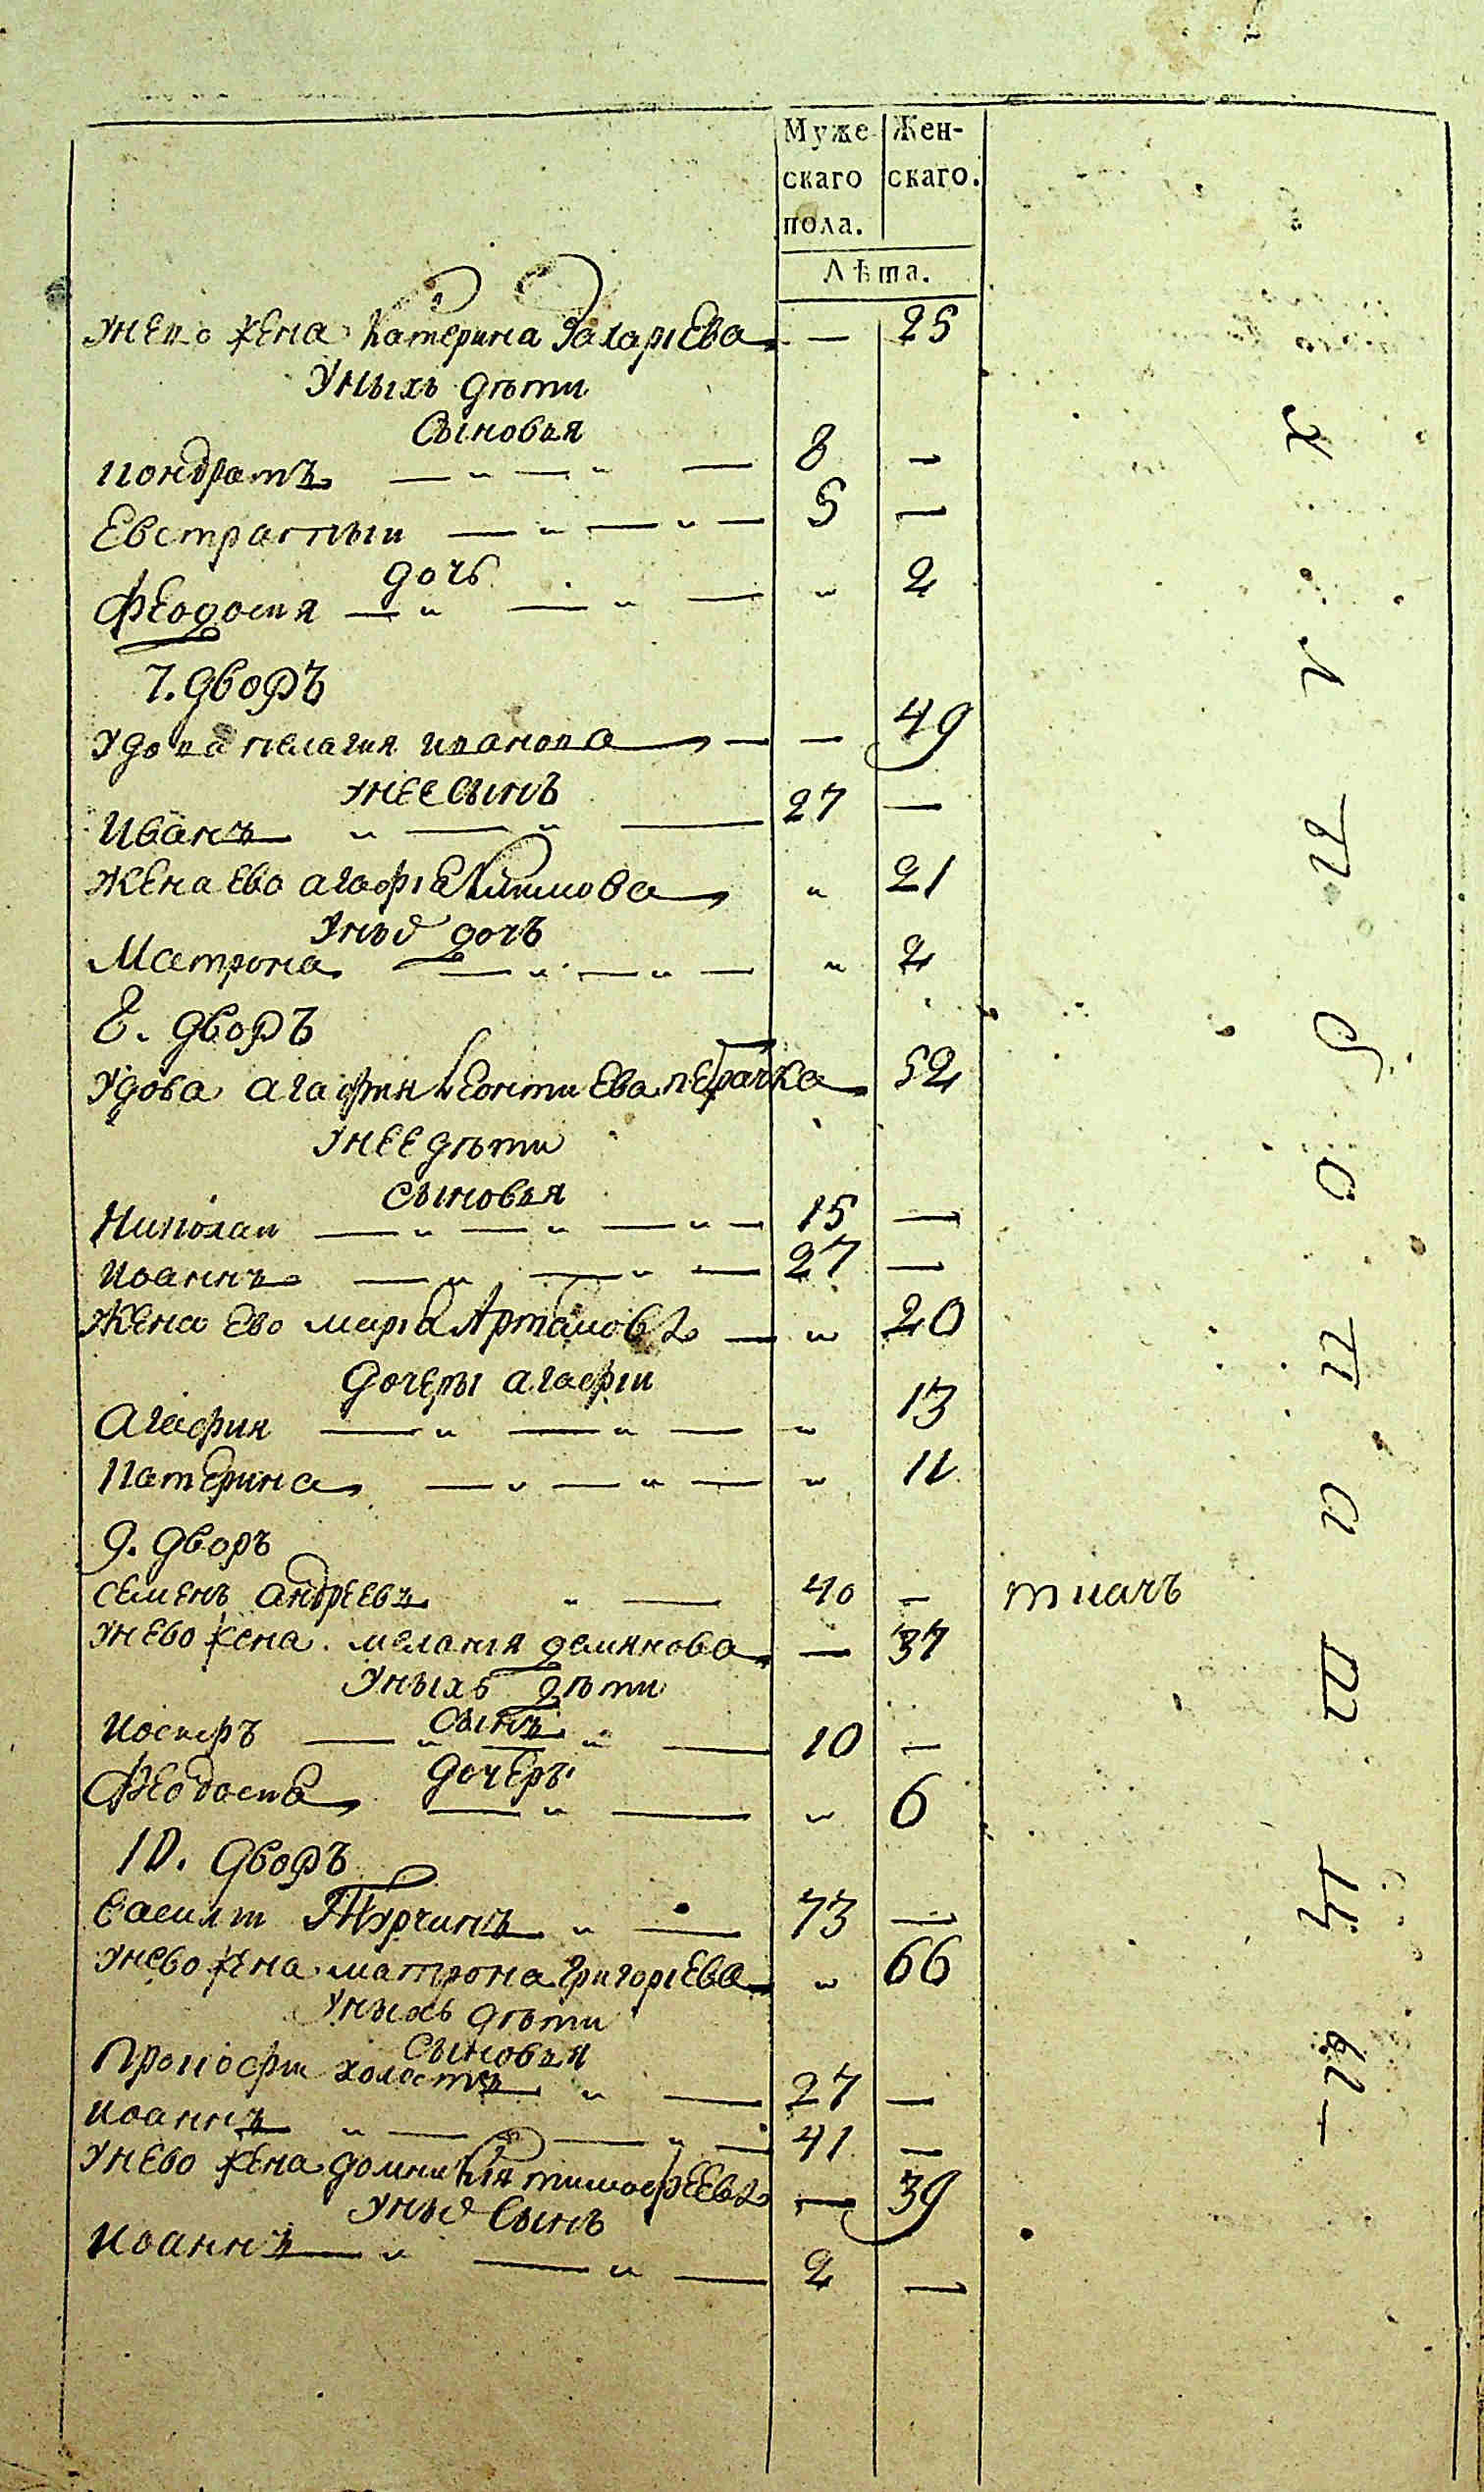 Муже- Жен-
скаго скаго.
пола.
Лѣта.
Унево жена Катерина Захарıева — 25
Уныхъ дѣти
Сыновья
Кондратъ 8 —
Евстратıи 5 —
дочь
Феодосия " 2
7. дворъ
Удова пелагия иванова — 49
унее сынъ
Иванъ 27 —
жена ево агафıа Климова " 21
Уныхъ дочъ
Матрона " 2
8. дворъ
Удова агафия Леонтиева перачка 52
унее дѣти
сыновья
Николаи 15 —
Иоаннъ 27 —
Жена ево марıа Артамова " 20
дочеры агафıи
Агафия " 13
Катерина " 11
9. дворъ
семенъ андреевъ 40 — ткачъ
унево жена меланıя демянова — 37
Уныхъ дѣти
сынъ
Иосифъ 10 —
дочеръ
Феодосıа " 6
10. дворъ
Василıи Турчинъ 73 —
унево жена матрона Григорıева " 66
Уныхъ дѣти
Сыновья
Прокофıи холостъ 27 —
Иоаннъ 41 —
Унево жена домникıя тимофеева — 39
Уныхъ Сынъ
Иоаннъ 2 —